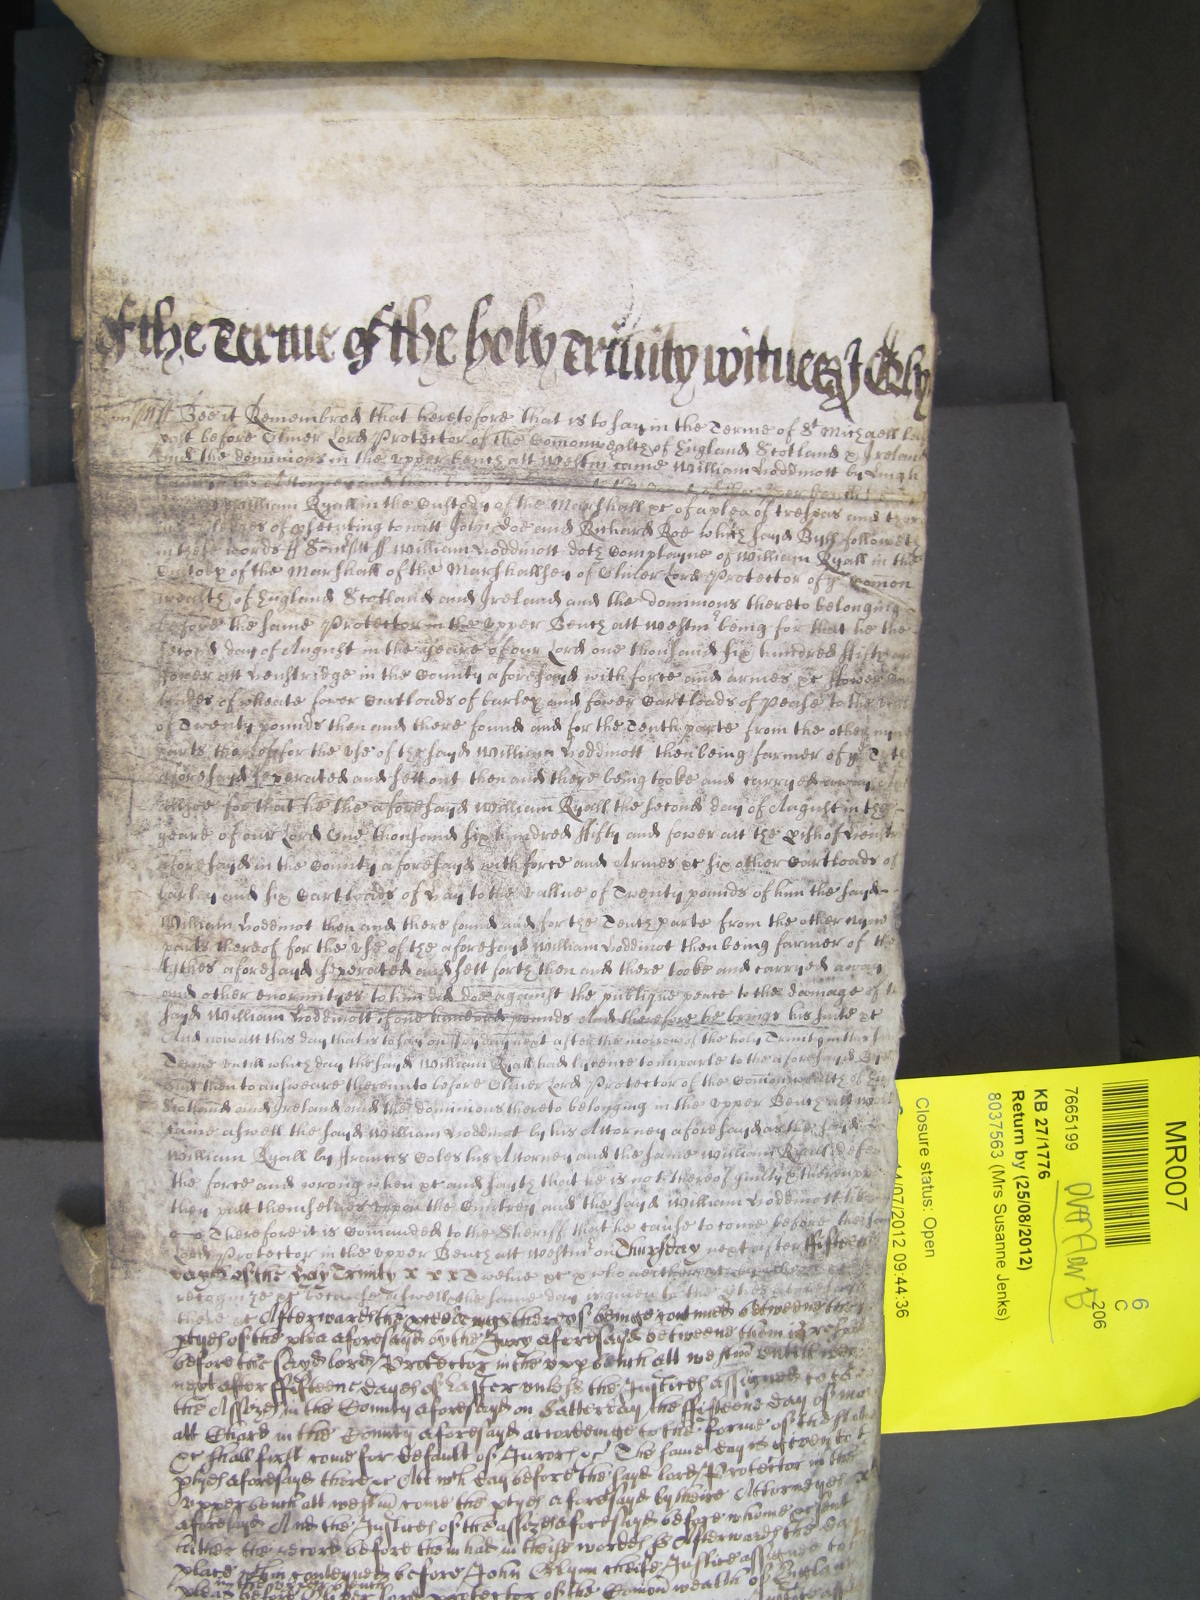 of the Terme of the holy Trinity witnes J Gly
Bee it Remembred that heretofore that is to say in the Terme of St Michaell last
past before Oliver Lord Protector of the Comonwealth of England Scotland & Ireland
and the dominions in the upper bench att Westmr came William Loddmott by Hugh
William Ryall in the Custody of the Marshall &c of a plea of trespas and there
pledges of prosecuting to witt John Doe and Richard Roe which sayd Byll followeth
in these words ff Somsett ff William Loddmott doth Complayne of William Ryall in the
Custody of the Marshall of the Marshallsey of Oliver Lord Protector of ye Comon
wealth of England Scotland and Ireland and the dominions thereto belonging
before the same Protector in the upper Bench att Westmr being for that he the
second day of August in the yeare of our Lord one thousand six hundred fifty and
fower att in the County aforesayd with force and armes &c fower Cart
loades of wheate fower Cartloads of barley and fower Cartloads of Pease to the vallue
of Twenty pounds then and there found and for the Tenth parte from the other nyne
parts thereof for the use of the sayd William Loddmott then being farmer of ye Tythes
aforesayd seperated and sett out then and there being tooke and carryed away And
allsoe for that he the aforesayd William Ryall the second day of August in the
yeare of our Lord One thousand six hundred fifty and fower att the pish of
aforesayd in the County aforesayd with force and Armes &c six other Cartloads of
barley and six Cartloads of Hay to the vallue of Twenty pounds of him the sayd
William Loddmot then and there found and for the Tenth parte from the other nyne
parts thereof for the use of the aforesayd William Loddmot then being farmer of the
tythes aforesayd seperated and sett forth then and there tooke and carryed away
and other enormityes to him did doe against the publique peace to the damage of the
sayd William Loddmott of one hundred pounds And therefore he brings his suite &c
And now att this day that is to say on fryday next after the morrow of the holy Trinity in this same
Terme untill which day the sayd William Ryall had licence to imparle to the aforesayd Byll
and then to answeare thereunto before Oliver Lord Protector of the Comonwealth of England
Scotland and Ireland and the dominions thereto belonging in the upper Bench att Westmr
came aswell the sayd William Loddmot by his Attorney aforesayd as the sayd
William Ryall by Francis Coles his Attorney and the same William Ryall defends
the force and wrong when &c and sayth that he is not thereof guilty & thereupon
then putt themselves uppon the Countrey and the sayd William Loddmott likewise
Therefore it is Comanded to the Sheriff that he cause to come before the sayd
Lord Protector in the upper Bench att Westmr on Thursday next after fifteene
dayes of the Holy Trinity x x x Twelve &c x who neither
recognize &c because aswell the same day is given to the ptyes aforesayd
there &c Afterwards the proceedings thereof beinge continued betweene the
ptyes of the plea aforesayd by the Jury aforesayd betweene them is respited
before the sayd lord Protector in the upp bench att westmr untill
next after fifteene dayes of Easter unles the Justices assigned to take
the Assizes in the County aforesayd on Satterday the fifteene day of
att Chard in the County aforesayd accordeinge to the forme of the Statute
&c shall first come for default of Jurors &c The same day is given to the
ptyes aforesayd there &c Att wch day before the sayd lord Protector in the
upper bench att westmr come the ptyes aforesayd by theire Attorneyes
aforesayd And the Justices of the assizes aforesayd before whome &c sent
hither the record before them had in theise wordes ff Afterwards the day
place wthin conteyned before John Glynn cheife Justice assigned to
pleas in the upper bench
before Oliver lord protector of the Comon wealth of England
MR007
6
C
206
7665199
KB 27/1776
Return by (25/08/2012)
8037563 (Mrs Susanne Jenks)
Closure status: Open
/07/2012 09:44:36